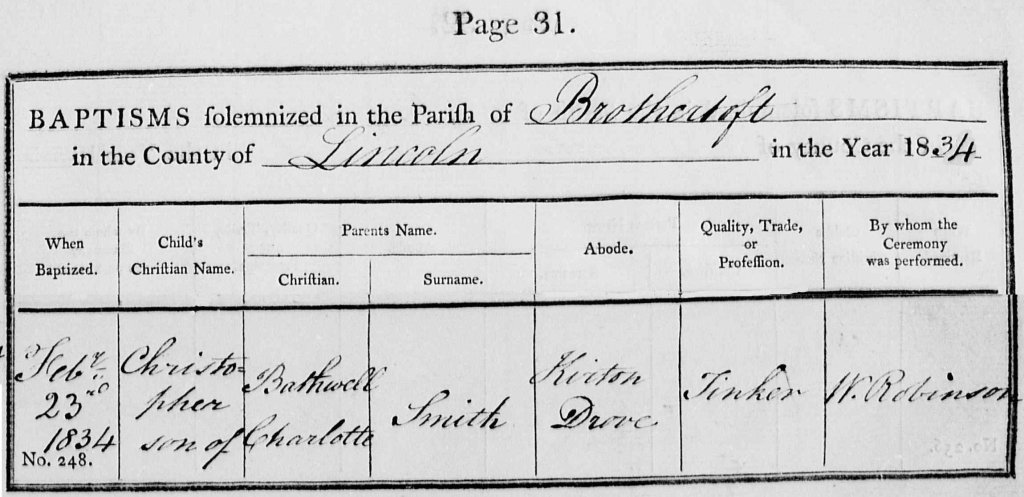 Page 31.
BAPTISMS solemnized in the Parish of Brothertoft
in the County of Lincoln in the Year 1834
When Baptized.
Child's Christian Name.
Parents Name.
Christian.
Surname.
Abode.
Quality, Trade, or Profession.
By whom the Ceremony was performed.
Feb.y 23rd 1834
No. 248.
Christo=
pher
son of
Bathwell
Charlotte
Smith
Kirton
Drove
Tinker
W. Robinson